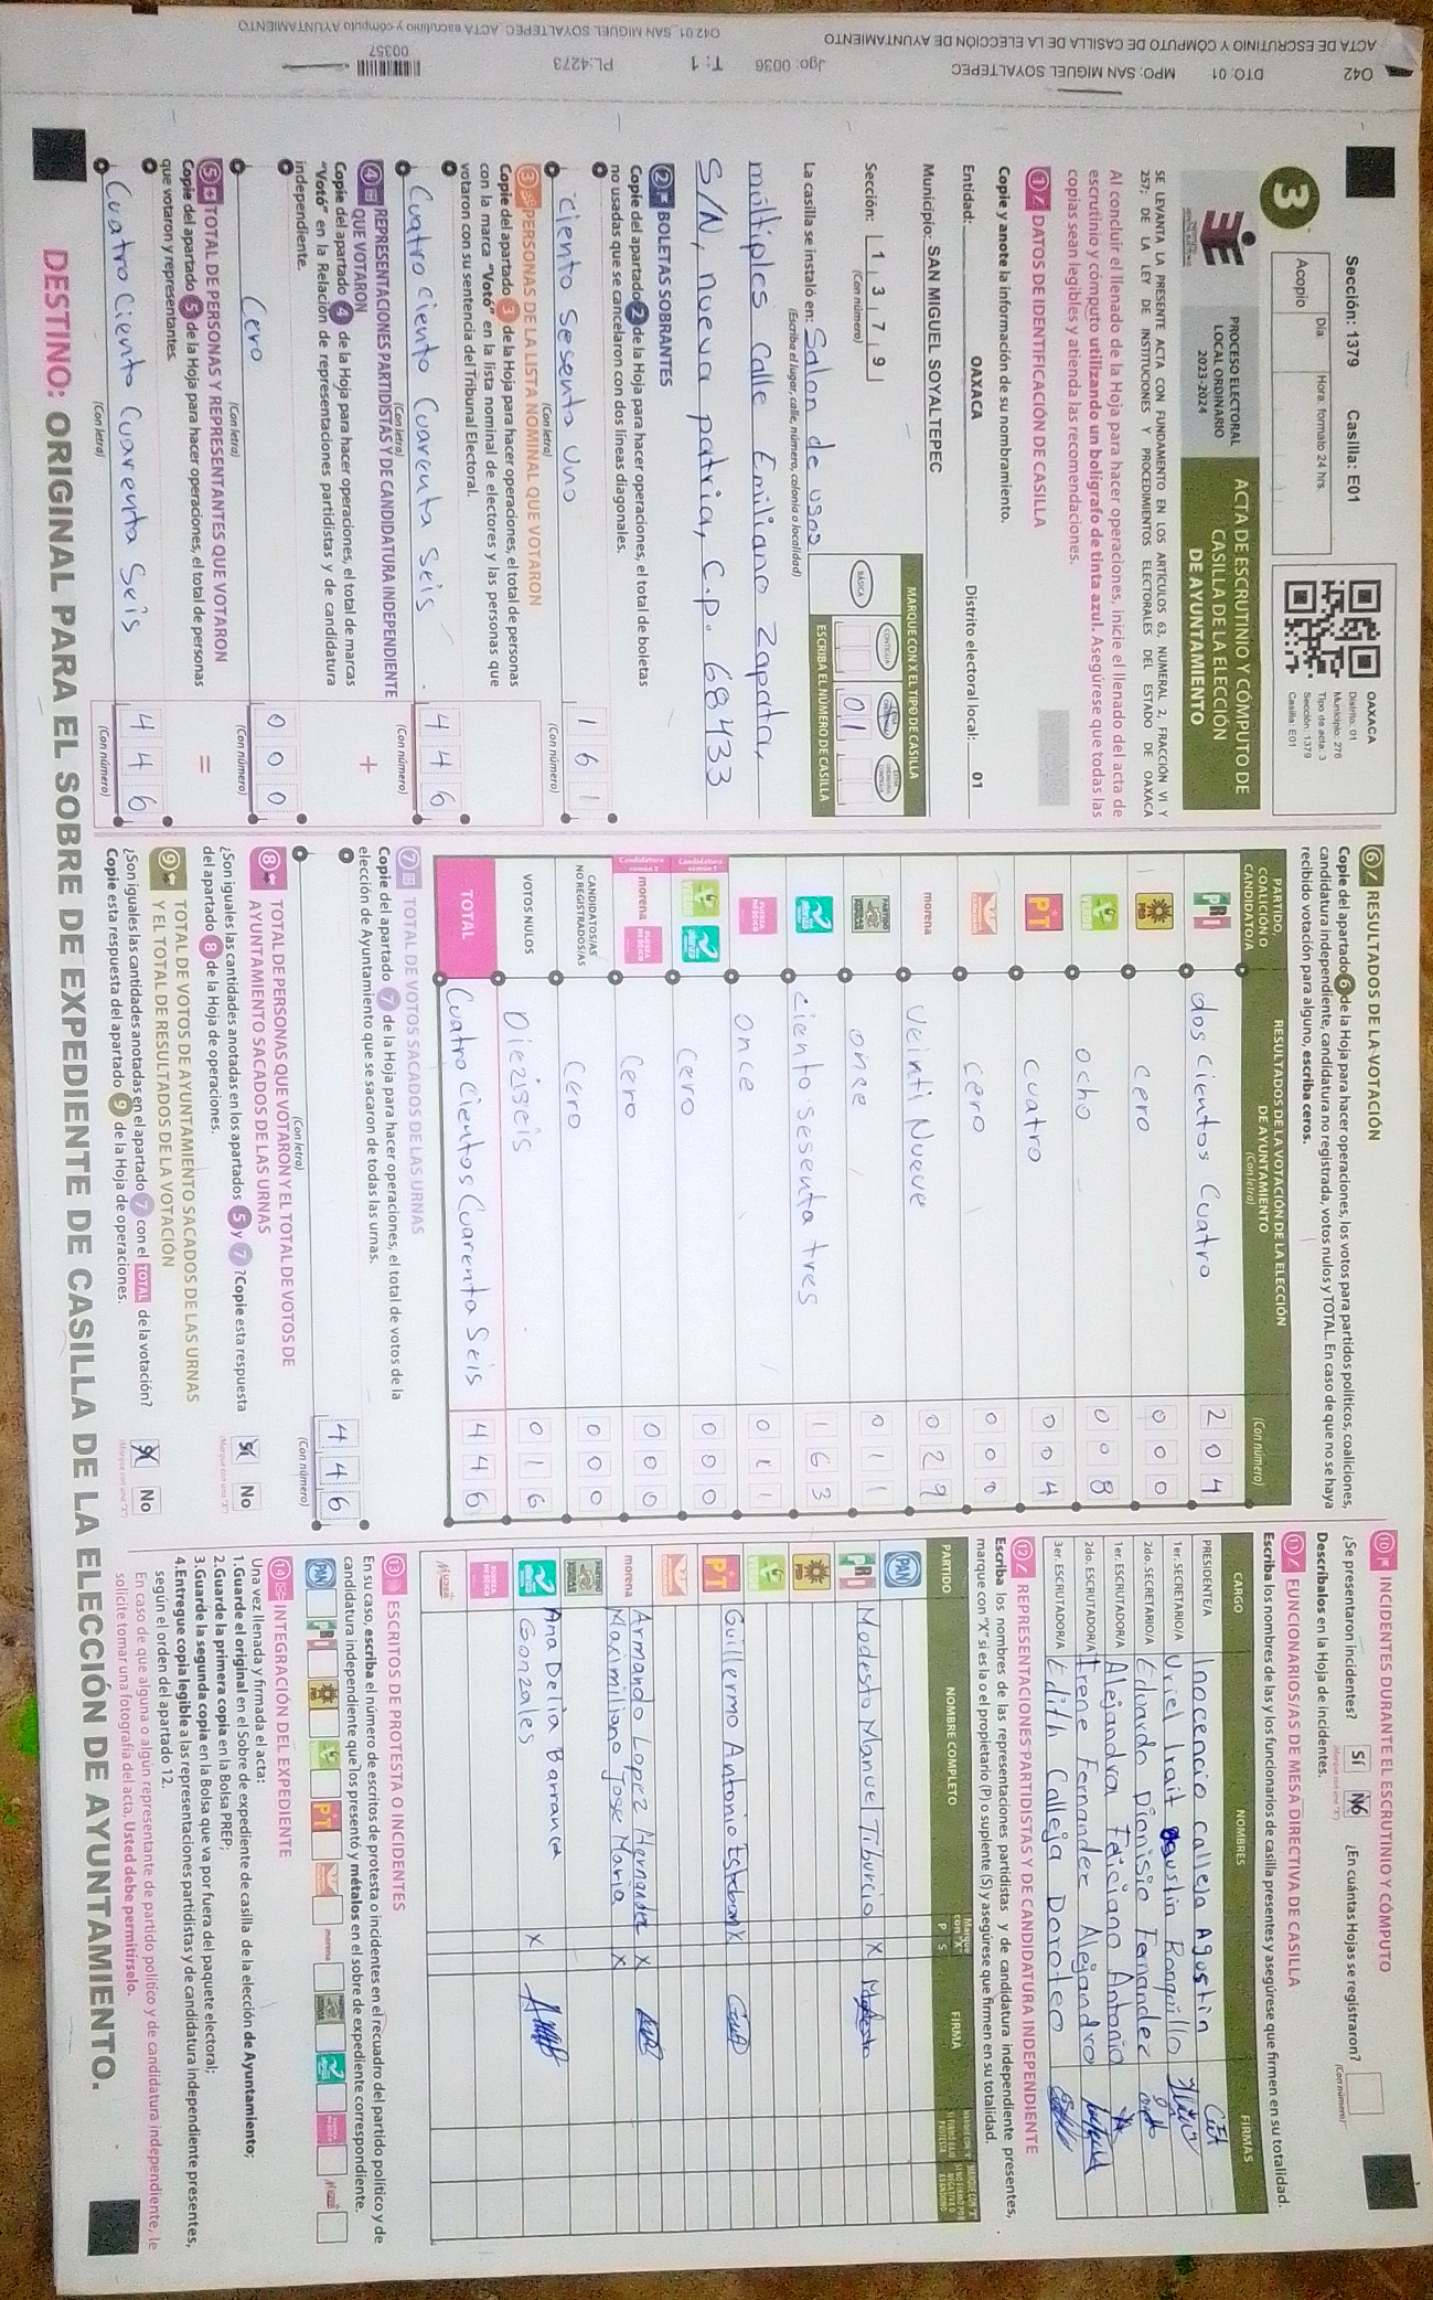 042 DTO: 01 MPO: SAN MIGUEL SOYALTEPEC Jgo: 0036 T: 1 PL:4273 00357
ACTA DE ESCRUTINIO Y CÓMPUTO DE CASILLA DE LA ELECCIÓN DE AYUNTAMIENTO 042 01_SAN MIGUEL SOYALTEPEC_ACTA escrutinio y cómputo AYUNTAMIENTO
Sección: 1379 Casilla: E01
3
Acopio Día: Hora: formato 24 hrs
OAXACA
Distrito: 01
Municipio: 278
Tipo de acta: 3
Sección: 1379
Casilla: E01
PROCESO ELECTORAL
LOCAL ORDINARIO
2023-2024
ACTA DE ESCRUTINIO Y CÓMPUTO DE
CASILLA DE LA ELECCIÓN
DE AYUNTAMIENTO
SE LEVANTA LA PRESENTE ACTA CON FUNDAMENTO EN LOS ARTÍCULOS 63, NUMERAL 2, FRACCIÓN VI Y
257; DE LA LEY DE INSTITUCIONES Y PROCEDIMIENTOS ELECTORALES DEL ESTADO DE OAXACA
Al concluir el llenado de la Hoja para hacer operaciones, inicie el llenado del acta de
escrutinio y cómputo utilizando un bolígrafo de tinta azul. Asegúrese que todas las
copias sean legibles y atienda las recomendaciones.
1 DATOS DE IDENTIFICACIÓN DE CASILLA
Copie y anote la información de su nombramiento.
Entidad: OAXACA Distrito electoral local: 01
Municipio: SAN MIGUEL SOYALTEPEC
Sección: 1 3 7 9
(Con número)
MARQUE CON X EL TIPO DE CASILLA
BÁSICA
01
ESCRIBA EL NÚMERO DE CASILLA
La casilla se instaló en: Salon de usos
(Escriba el lugar, calle, número, colonia o localidad)
múltiples calle Emiliano Zapata,
S/N, nueva patria, C.p. 68433
2 BOLETAS SOBRANTES
Copie del apartado 2 de la Hoja para hacer operaciones, el total de boletas
no usadas que se cancelaron con dos líneas diagonales.
ciento sesenta uno 1 6 1
(Con letra) (Con número)
3 PERSONAS DE LA LISTA NOMINAL QUE VOTARON
Copie del apartado 3 de la Hoja para hacer operaciones, el total de personas
con la marca "Votó" en la lista nominal de electores y las personas que
votaron con su sentencia del Tribunal Electoral.
Cuatro ciento Cuarenta seis 4 4 6
(Con letra) (Con número)
4 REPRESENTACIONES PARTIDISTAS Y DE CANDIDATURA INDEPENDIENTE
QUE VOTARON +
Copie del apartado 4 de la Hoja para hacer operaciones, el total de marcas
"Votó" en la Relación de representaciones partidistas y de candidatura
independiente.
Cero 0 0 0
(Con letra) (Con número)
5 TOTAL DE PERSONAS Y REPRESENTANTES QUE VOTARON =
Copie del apartado 5 de la Hoja para hacer operaciones, el total de personas
que votaron y representantes.
Cuatro Ciento Cuarenta Seis 4 4 6
(Con letra) (Con número)
6 RESULTADOS DE LA VOTACIÓN
Copie del apartado 6 de la Hoja para hacer operaciones, los votos para partidos políticos, coaliciones,
candidatura independiente, candidatura no registrada, votos nulos y TOTAL. En caso de que no se haya
recibido votación para alguno, escriba ceros.
PARTIDO, COALICIÓN O CANDIDATO/A RESULTADOS DE LA VOTACIÓN DE LA ELECCIÓN DE AYUNTAMIENTO (Con letra) (Con número)
PRI dos cientos Cuatro 2 0 4
PRD cero 0 0 0
VERDE ocho 0 0 8
PT cuatro 0 0 4
cero 0 0 0
morena Veinti Nueve 0 2 9
PARTIDO UNIDAD POPULAR once 0 1 1
ciento sesenta tres 1 6 3
FUERZA MÉXICO once 0 1 1
Candidatura común 1 cero 0 0 0
Candidatura común 2 morena FUERZA MÉXICO Cero 0 0 0
CANDIDATOS/AS NO REGISTRADOS/AS Cero 0 0 0
VOTOS NULOS Dieziseis 0 1 6
TOTAL Cuatro Cientos Cuarenta Seis 4 4 6
7 TOTAL DE VOTOS SACADOS DE LAS URNAS
Copie del apartado 7 de la Hoja para hacer operaciones, el total de votos de la
elección de Ayuntamiento que se sacaron de todas las urnas.
4 4 6
(Con letra) (Con número)
8 TOTAL DE PERSONAS QUE VOTARON Y EL TOTAL DE VOTOS DE
AYUNTAMIENTO SACADOS DE LAS URNAS
¿Son iguales las cantidades anotadas en los apartados 5 y 7 ? Copie esta respuesta
del apartado 8 de la Hoja de operaciones.
Sí No
9 TOTAL DE VOTOS DE AYUNTAMIENTO SACADOS DE LAS URNAS
Y EL TOTAL DE RESULTADOS DE LA VOTACIÓN
¿Son iguales las cantidades anotadas en el apartado 7 con el TOTAL de la votación?
Copie esta respuesta del apartado 9 de la Hoja de operaciones.
Sí No
10 INCIDENTES DURANTE EL ESCRUTINIO Y CÓMPUTO
¿Se presentaron incidentes? Sí No ¿En cuántas Hojas se registraron?
(Con número)
Descríbalos en la Hoja de incidentes.
11 FUNCIONARIOS/AS DE MESA DIRECTIVA DE CASILLA
Escriba los nombres de las y los funcionarios de casilla presentes y asegúrese que firmen en su totalidad.
CARGO NOMBRES FIRMAS
PRESIDENTE/A Inocencio calleja Agustin
1er. SECRETARIO/A Uriel Irait Agustin Ronquillo
2do. SECRETARIO/A Eduardo Dionisio Fernandez
1er. ESCRUTADOR/A Alejandra Feliciano Antonio
2do. ESCRUTADOR/A Irene Fernandez Alejandro
3er. ESCRUTADOR/A Edith Calleja Doroteo
12 REPRESENTACIONES PARTIDISTAS Y DE CANDIDATURA INDEPENDIENTE
Escriba los nombres de las representaciones partidistas y de candidatura independiente presentes,
marque con "X" si es la o el propietario (P) o suplente (S) y asegúrese que firmen en su totalidad.
PARTIDO NOMBRE COMPLETO Marque con "X" P S FIRMA
PAN
PRI Modesto Manuel Tiburcio X Modesto
PRD
VERDE
PT Guillermo Antonio Esteban X
morena Armando Lopez Hernandez X
Maximiliano Jose Maria X
PARTIDO UNIDAD POPULAR
Ana Delia Barranca X
Gonzales
FUERZA MÉXICO
13 ESCRITOS DE PROTESTA O INCIDENTES
En su caso, escriba el número de escritos de protesta o incidentes en el recuadro del partido político y de
candidatura independiente que los presentó y métalos en el sobre de expediente correspondiente.
PAN PRI PRD VERDE PT morena
14 INTEGRACIÓN DEL EXPEDIENTE
Una vez llenada y firmada el acta:
1.Guarde el original en el Sobre de expediente de casilla de la elección de Ayuntamiento;
2.Guarde la primera copia en la Bolsa PREP;
3.Guarde la segunda copia en la Bolsa que va por fuera del paquete electoral;
4.Entregue copia legible a las representaciones partidistas y de candidatura independiente presentes,
según el orden del apartado 12.
En caso de que alguna o algún representante de partido político y de candidatura independiente, le
solicite tomar una fotografía del acta, Usted debe permitírselo.
DESTINO: ORIGINAL PARA EL SOBRE DE EXPEDIENTE DE CASILLA DE LA ELECCIÓN DE AYUNTAMIENTO.